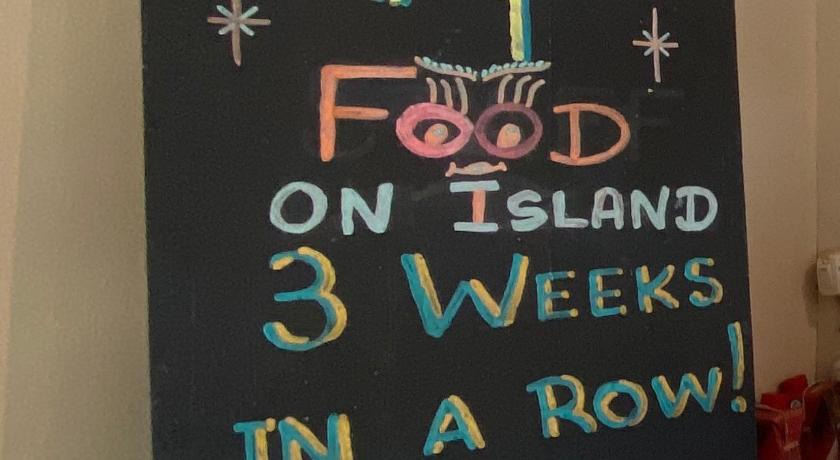 FOOD
ON ISLAND
3 WEEKS
IN A ROW!